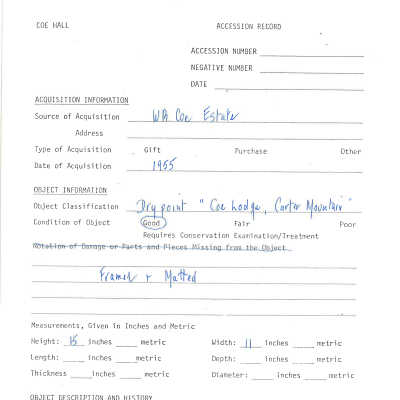 COE HALL ACCESSION RECORD
ACCESSION NUMBER
NEGATIVE NUMBER
DATE
ACQUISITION INFORMATION
Source of Acquisition WR Coe Estate
Address
Type of Acquisition Gift Purchase Other
Date of Acquisition 1955
OBJECT INFORMATION
Object Classification Drypoint "Coe Lodge, Carter Mountain"
Condition of Object Good Fair Poor
Requires Conservation Examination/Treatment
Notation of Damage or Parts and Pieces Missing from the Object
Framed + Matted
Measurements, Given in Inches and Metric
Height: 15 inches metric Width: 11 inches metric
Length: inches metric Depth: inches metric
Thickness inches metric Diameter: inches metric
OBJECT DESCRIPTION AND HISTORY